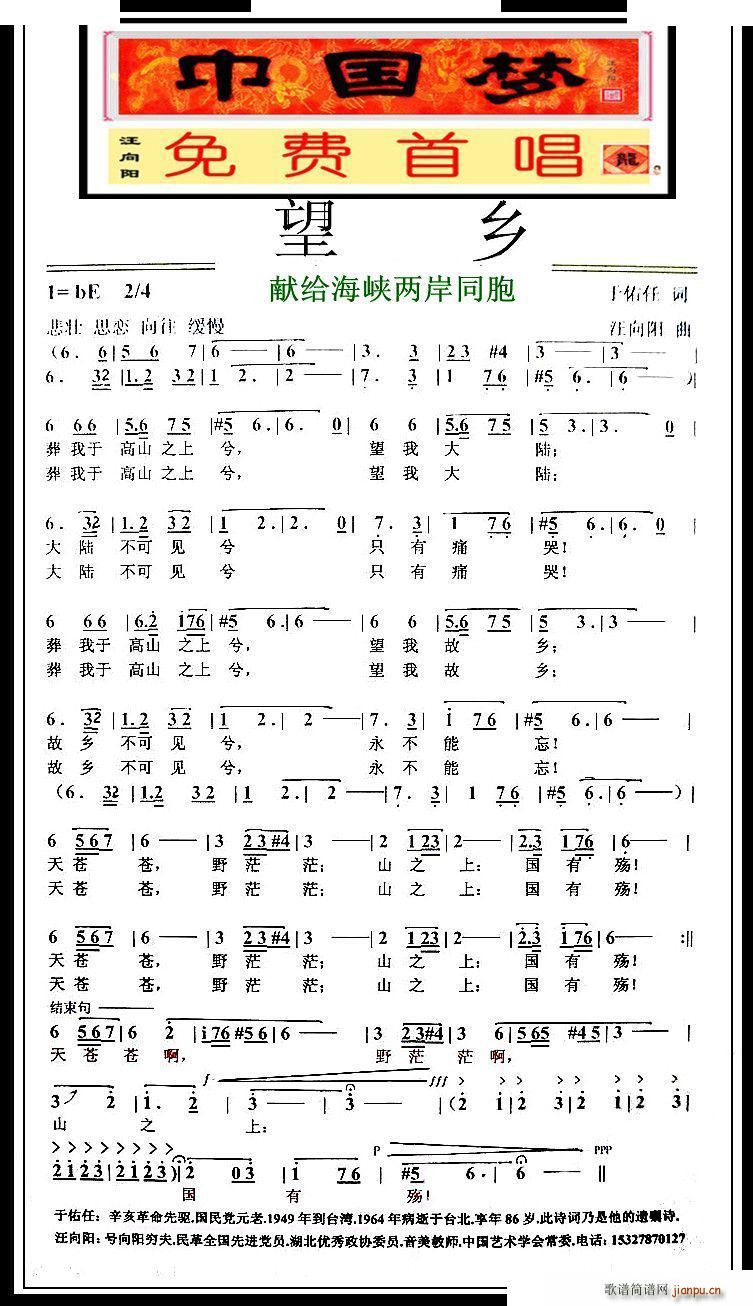 中国梦
汪向阳
汪向阳 免费首唱 龍
望 乡
献给海峡两岸同胞
1=bE 2/4 于佑任 词
悲壮 思恋 向往 缓慢 汪向阳 曲
(6. 6|5 6 7|6 —|6 —|3. 3|2 3 #4|3 —|3 —|
6. 32|1.2 32|1 2.|2 —|7. 3|1 76|#5 6.|6 —)|
6 66|5.6 75|#5 6.|6. 0|6 6|5.6 75|5 3.|3. 0|
葬 我于 高山 之上 兮, 望 我 大 陆;
葬 我于 高山 之上 兮, 望 我 大 陆;
6. 32|1.2 32|1 2.|2. 0|7. 3|1 76|#5 6.|6. 0
大 陆 不可 见 兮 只 有 痛 哭!
大 陆 不可 见 兮 只 有 痛 哭!
6 66|6.2 176|#5 6.|6 —|6 6|5.6 75|5 3.|3 —
葬 我于 高山 之上 兮, 望 我 故 乡;
葬 我于 高山 之上 兮, 望 我 故 乡;
6. 32|1.2 32|1 2.|2 —|7. 3|1 76|#5 6.|6 —
故 乡 不可 见 兮, 永 不 能 忘!
故 乡 不可 见 兮, 永 不 能 忘!
(6. 32|1.2 32|1 2.|2 —|7. 3|1 76|#5 6.|6 —)|
6 567|6 —|3 23#4|3 —|2 123|2 —|2.3 176|6 —
天 苍 苍, 野 茫 茫; 山 之 上: 国 有 殇!
天 苍 苍, 野 茫 茫; 山 之 上: 国 有 殇!
6 567|6 —|3 23#4|3 —|2 123|2 —|2.3 176|6 — :||
天 苍 苍, 野 茫 茫; 山 之 上: 国 有 殇!
天 苍 苍, 野 茫 茫; 山 之 上: 国 有 殇!
结束句
6 567|6 2|i76 #56|6 —|3 23#4|3 6|565 #45|3 —
天 苍 苍 啊, 野 茫 茫 啊,
f fff > > > > > > > >
3 2|1. 2|3 —|3 —|(2 1|2 3|2 1 2 3|2 1 2 3|
山 之 上:
> > > > > > > > p ppp
2123 2123|2) 03|1 76|#5 6|6 — ||
国 有 殇!
于佑任: 辛亥革命先驱.国民党元老.1949年到台湾.1964年病逝于台北.享年86岁.此诗词乃是他的遗嘱诗.
汪向阳: 号向阳穷夫.民革全国先进党员.湖北优秀政协委员.音美教师.中国艺术学会常委.电话: 15327870127
歌谱简谱网
jianpu.cn